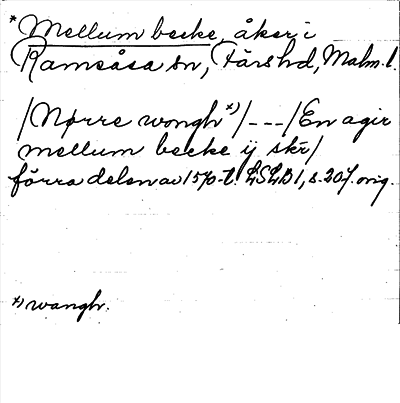 * Mellum becke, åker i
Ramsåsa sn, Färs hd, Malm. l.
/Nørre wongh *)/ - - - /En agir
mellum becke ij skr/
förra delen av 1570-t. LSLB 1, s. 207. orig.
*) wangh.